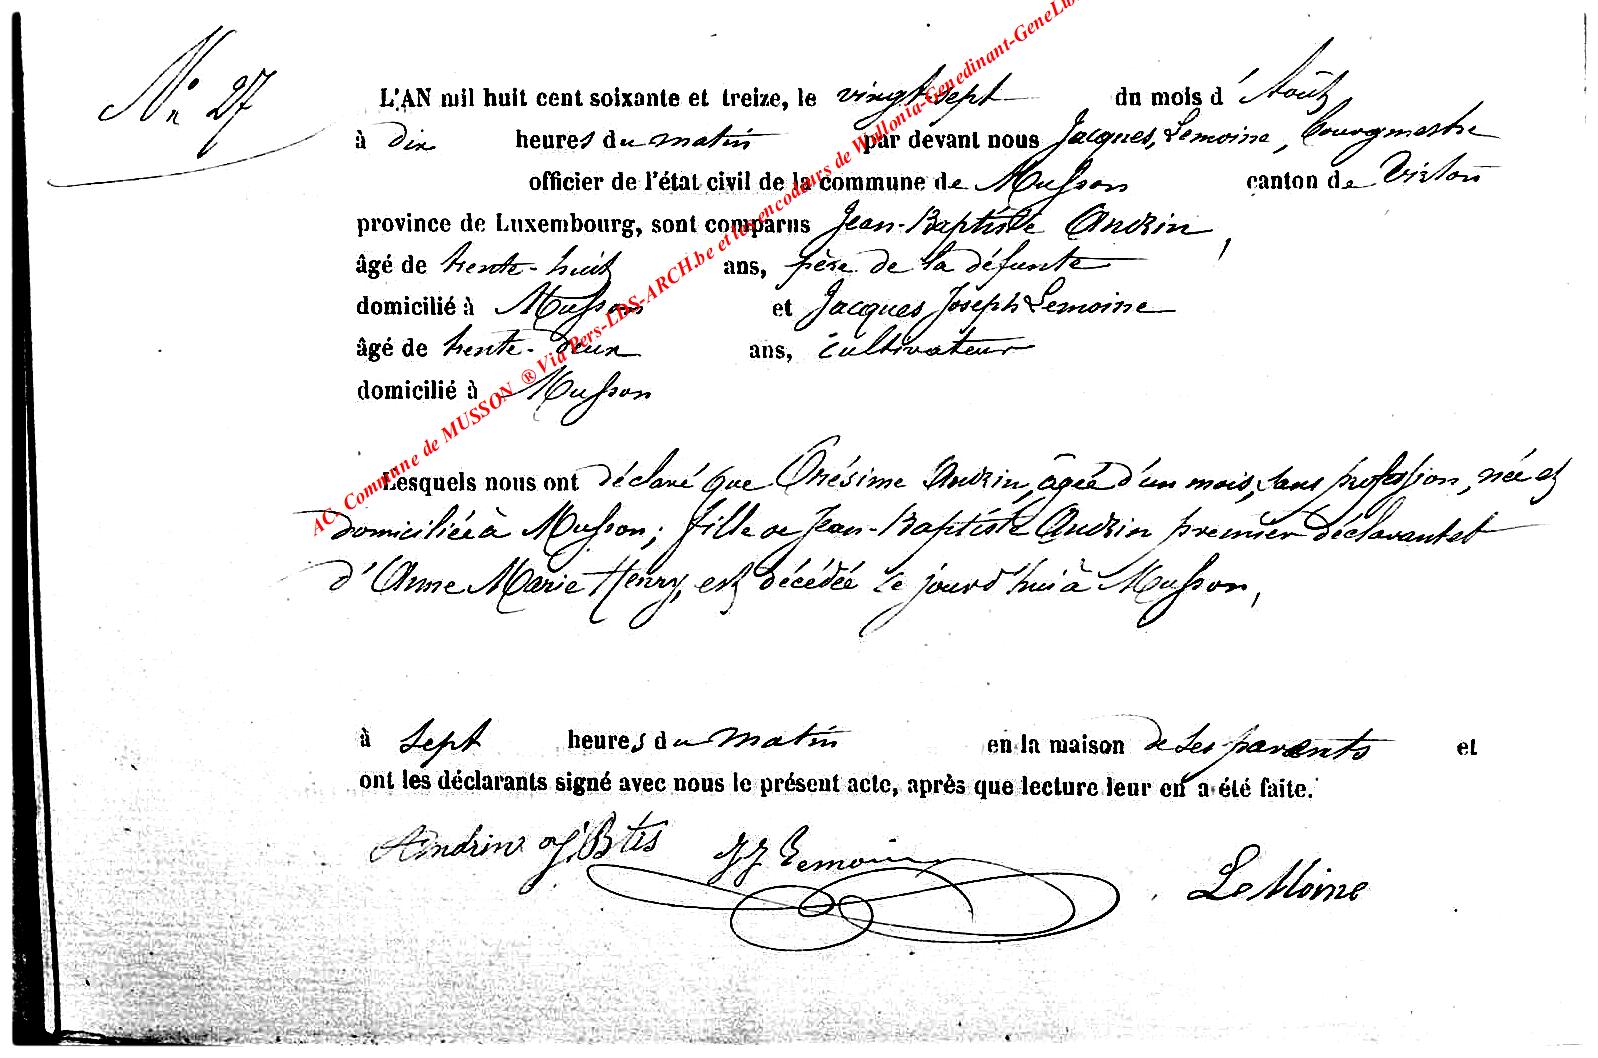 Nº 27
L'AN mil huit cent soixante et treize, le vingt sept du mois d' Août
à dix heures du matin par devant nous Jacques Lemoine, Bourgmestre
officier de l'état civil de la commune de Musson canton de Virton
province de Luxembourg, sont comparus Jean-Baptiste Andrin,
âgé de trente-huit ans, père de la défunte
domicilié à Musson et Jacques Joseph Lemoine
âgé de trente-deux ans, cultivateur
domicilié à Musson
Lesquels nous ont déclaré que Onésime Andrin, âgée d'un mois, sans profession, née et
domiciliée à Musson; fille de Jean-Baptiste Andrin premier déclarant et
d'Anne Marie Henry, est décédée ce jourd'hui à Musson,
à sept heures du matin en la maison de ses parents et
ont les déclarants signé avec nous le présent acte, après que lecture leur en a été faite.
Andrin J. Btis JJ Lemoine LeMoine
AC. Commune de MUSSON ® Via Pers-LDS-ARCH.be et les encodeurs de Wallonia-Genedinant-GeneLux